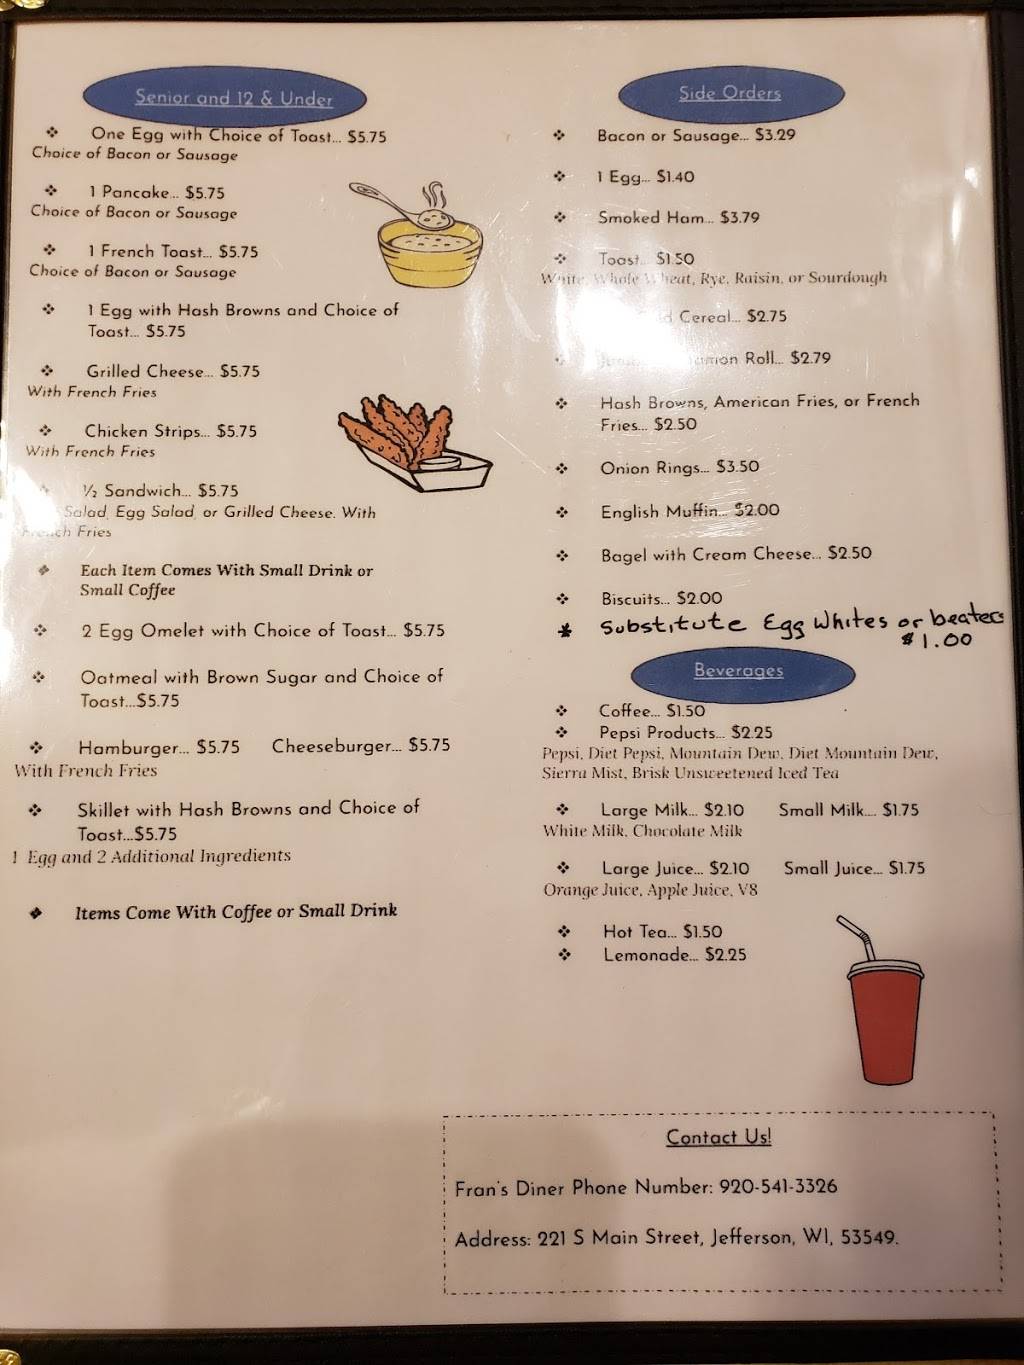 Senior and 12 & Under
One Egg with Choice of Toast... $5.75
Choice of Bacon or Sausage
1 Pancake... $5.75
Choice of Bacon or Sausage
1 French Toast... $5.75
Choice of Bacon or Sausage
1 Egg with Hash Browns and Choice of
Toast... $5.75
Grilled Cheese... $5.75
With French Fries
Chicken Strips... $5.75
With French Fries
½ Sandwich... $5.75
Salad, Egg Salad, or Grilled Cheese. With
French Fries
Each Item Comes With Small Drink or
Small Coffee
2 Egg Omelet with Choice of Toast... $5.75
Oatmeal with Brown Sugar and Choice of
Toast...$5.75
Hamburger... $5.75 Cheeseburger... $5.75
With French Fries
Skillet with Hash Browns and Choice of
Toast...$5.75
1 Egg and 2 Additional Ingredients
Items Come With Coffee or Small Drink
Side Orders
Bacon or Sausage... $3.29
1 Egg... $1.40
Smoked Ham... $3.79
Toast... $1.50
White, Whole Wheat, Rye, Raisin, or Sourdough
Cereal... $2.75
Roll... $2.79
Hash Browns, American Fries, or French
Fries... $2.50
Onion Rings... $3.50
English Muffin... $2.00
Bagel with Cream Cheese... $2.50
Biscuits... $2.00
* Substitute Egg Whites or beaters
$1.00
Beverages
Coffee... $1.50
Pepsi Products... $2.25
Pepsi, Diet Pepsi, Mountain Dew, Diet Mountain Dew,
Sierra Mist, Brisk Unsweetened Iced Tea
Large Milk... $2.10 Small Milk.... $1.75
White Milk, Chocolate Milk
Large Juice... $2.10 Small Juice... $1.75
Orange Juice, Apple Juice, V8
Hot Tea... $1.50
Lemonade... $2.25
Contact Us!
Fran's Diner Phone Number: 920-541-3326
Address: 221 S Main Street, Jefferson, WI, 53549.